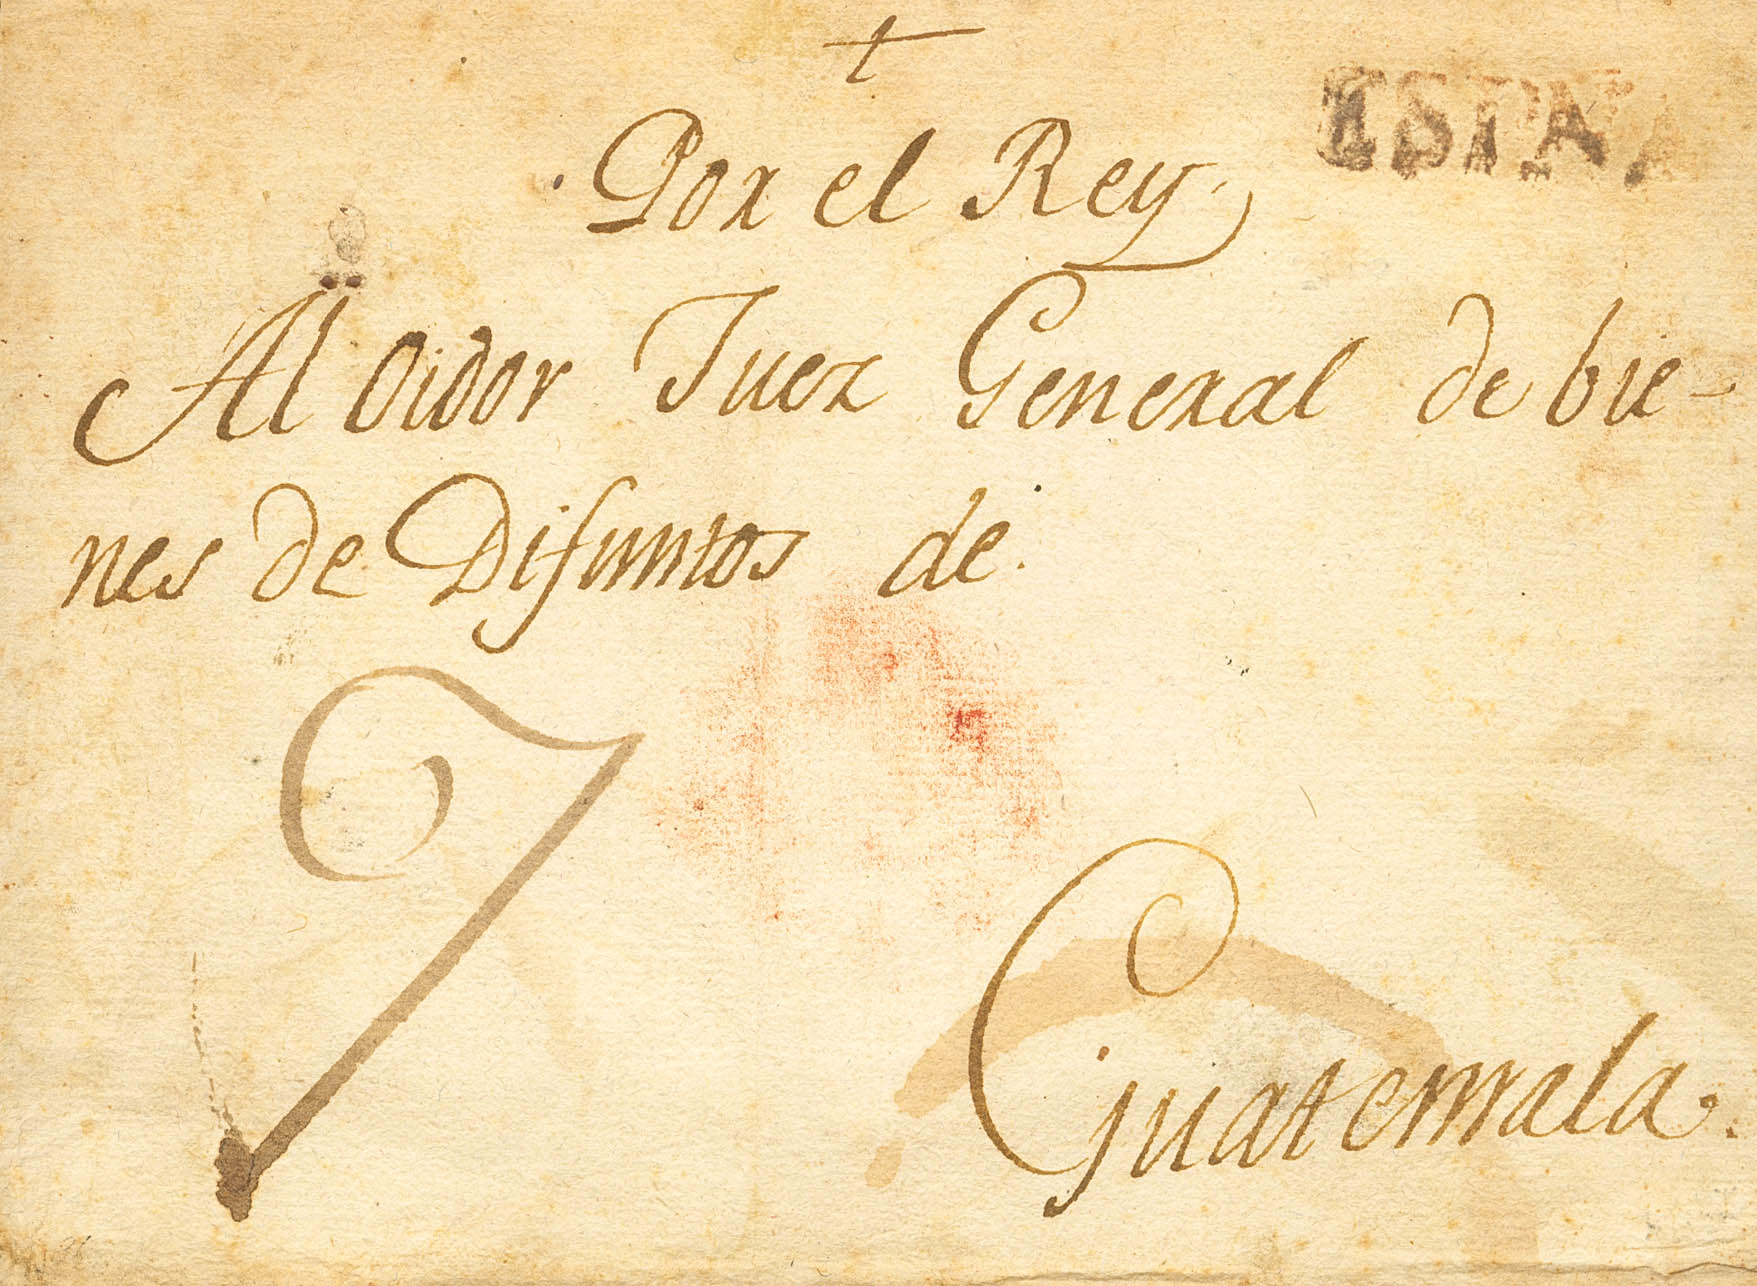 †
ESPAÑA
Por el Rey.
Al Oidor Juez General de bie-
nes de Difuntos de.
7
Guatemala.